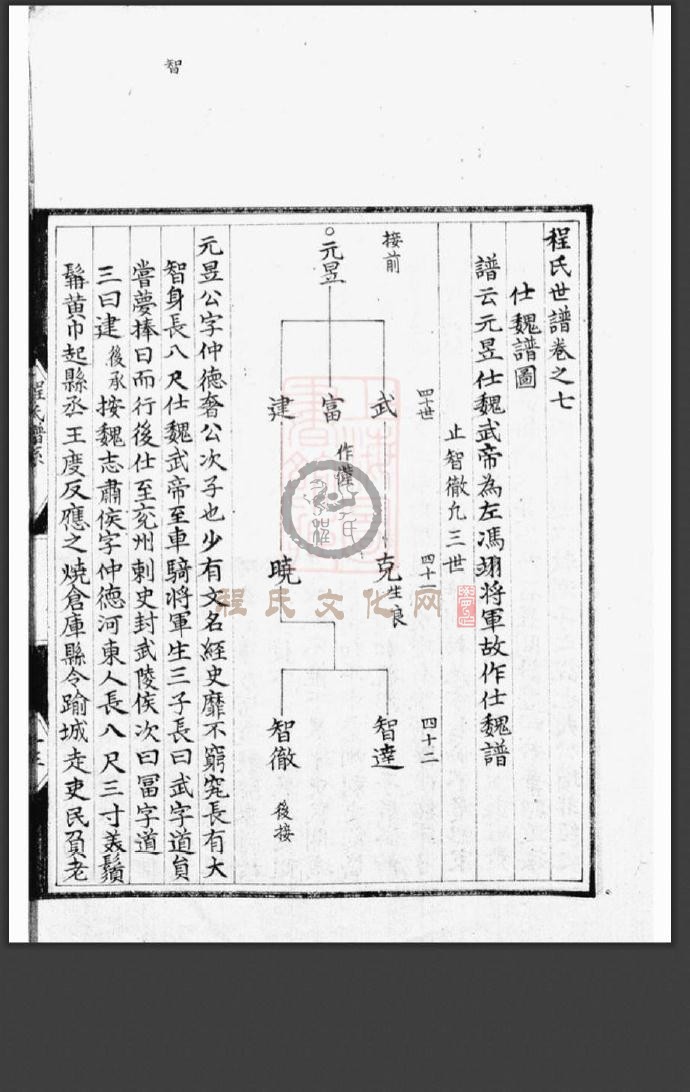 智
程氏世譜卷之七
仕魏譜圖
譜云元昱仕魏武帝為左馮翊將軍故作仕魏譜
止智徹凢三世
四十世
四十一
四十二
接前
元昱
武
克
生良
智達
富
作
建
曉
智徹
後接
元昱公字仲德奢公次子也少有文名經史靡不窮究長有大
智身長八尺仕魏武帝至車騎将軍生三子長曰武字道員
嘗夢捧日而行後仕至兖州刺史封武陵侯次曰冨字道
三曰建後承按魏志肅侯字仲德河東人長八尺三寸美鬚
髯黄巾起縣丞王度反應之燒倉庫縣令踰城走吏民負老
程氏譜系
程氏文化网